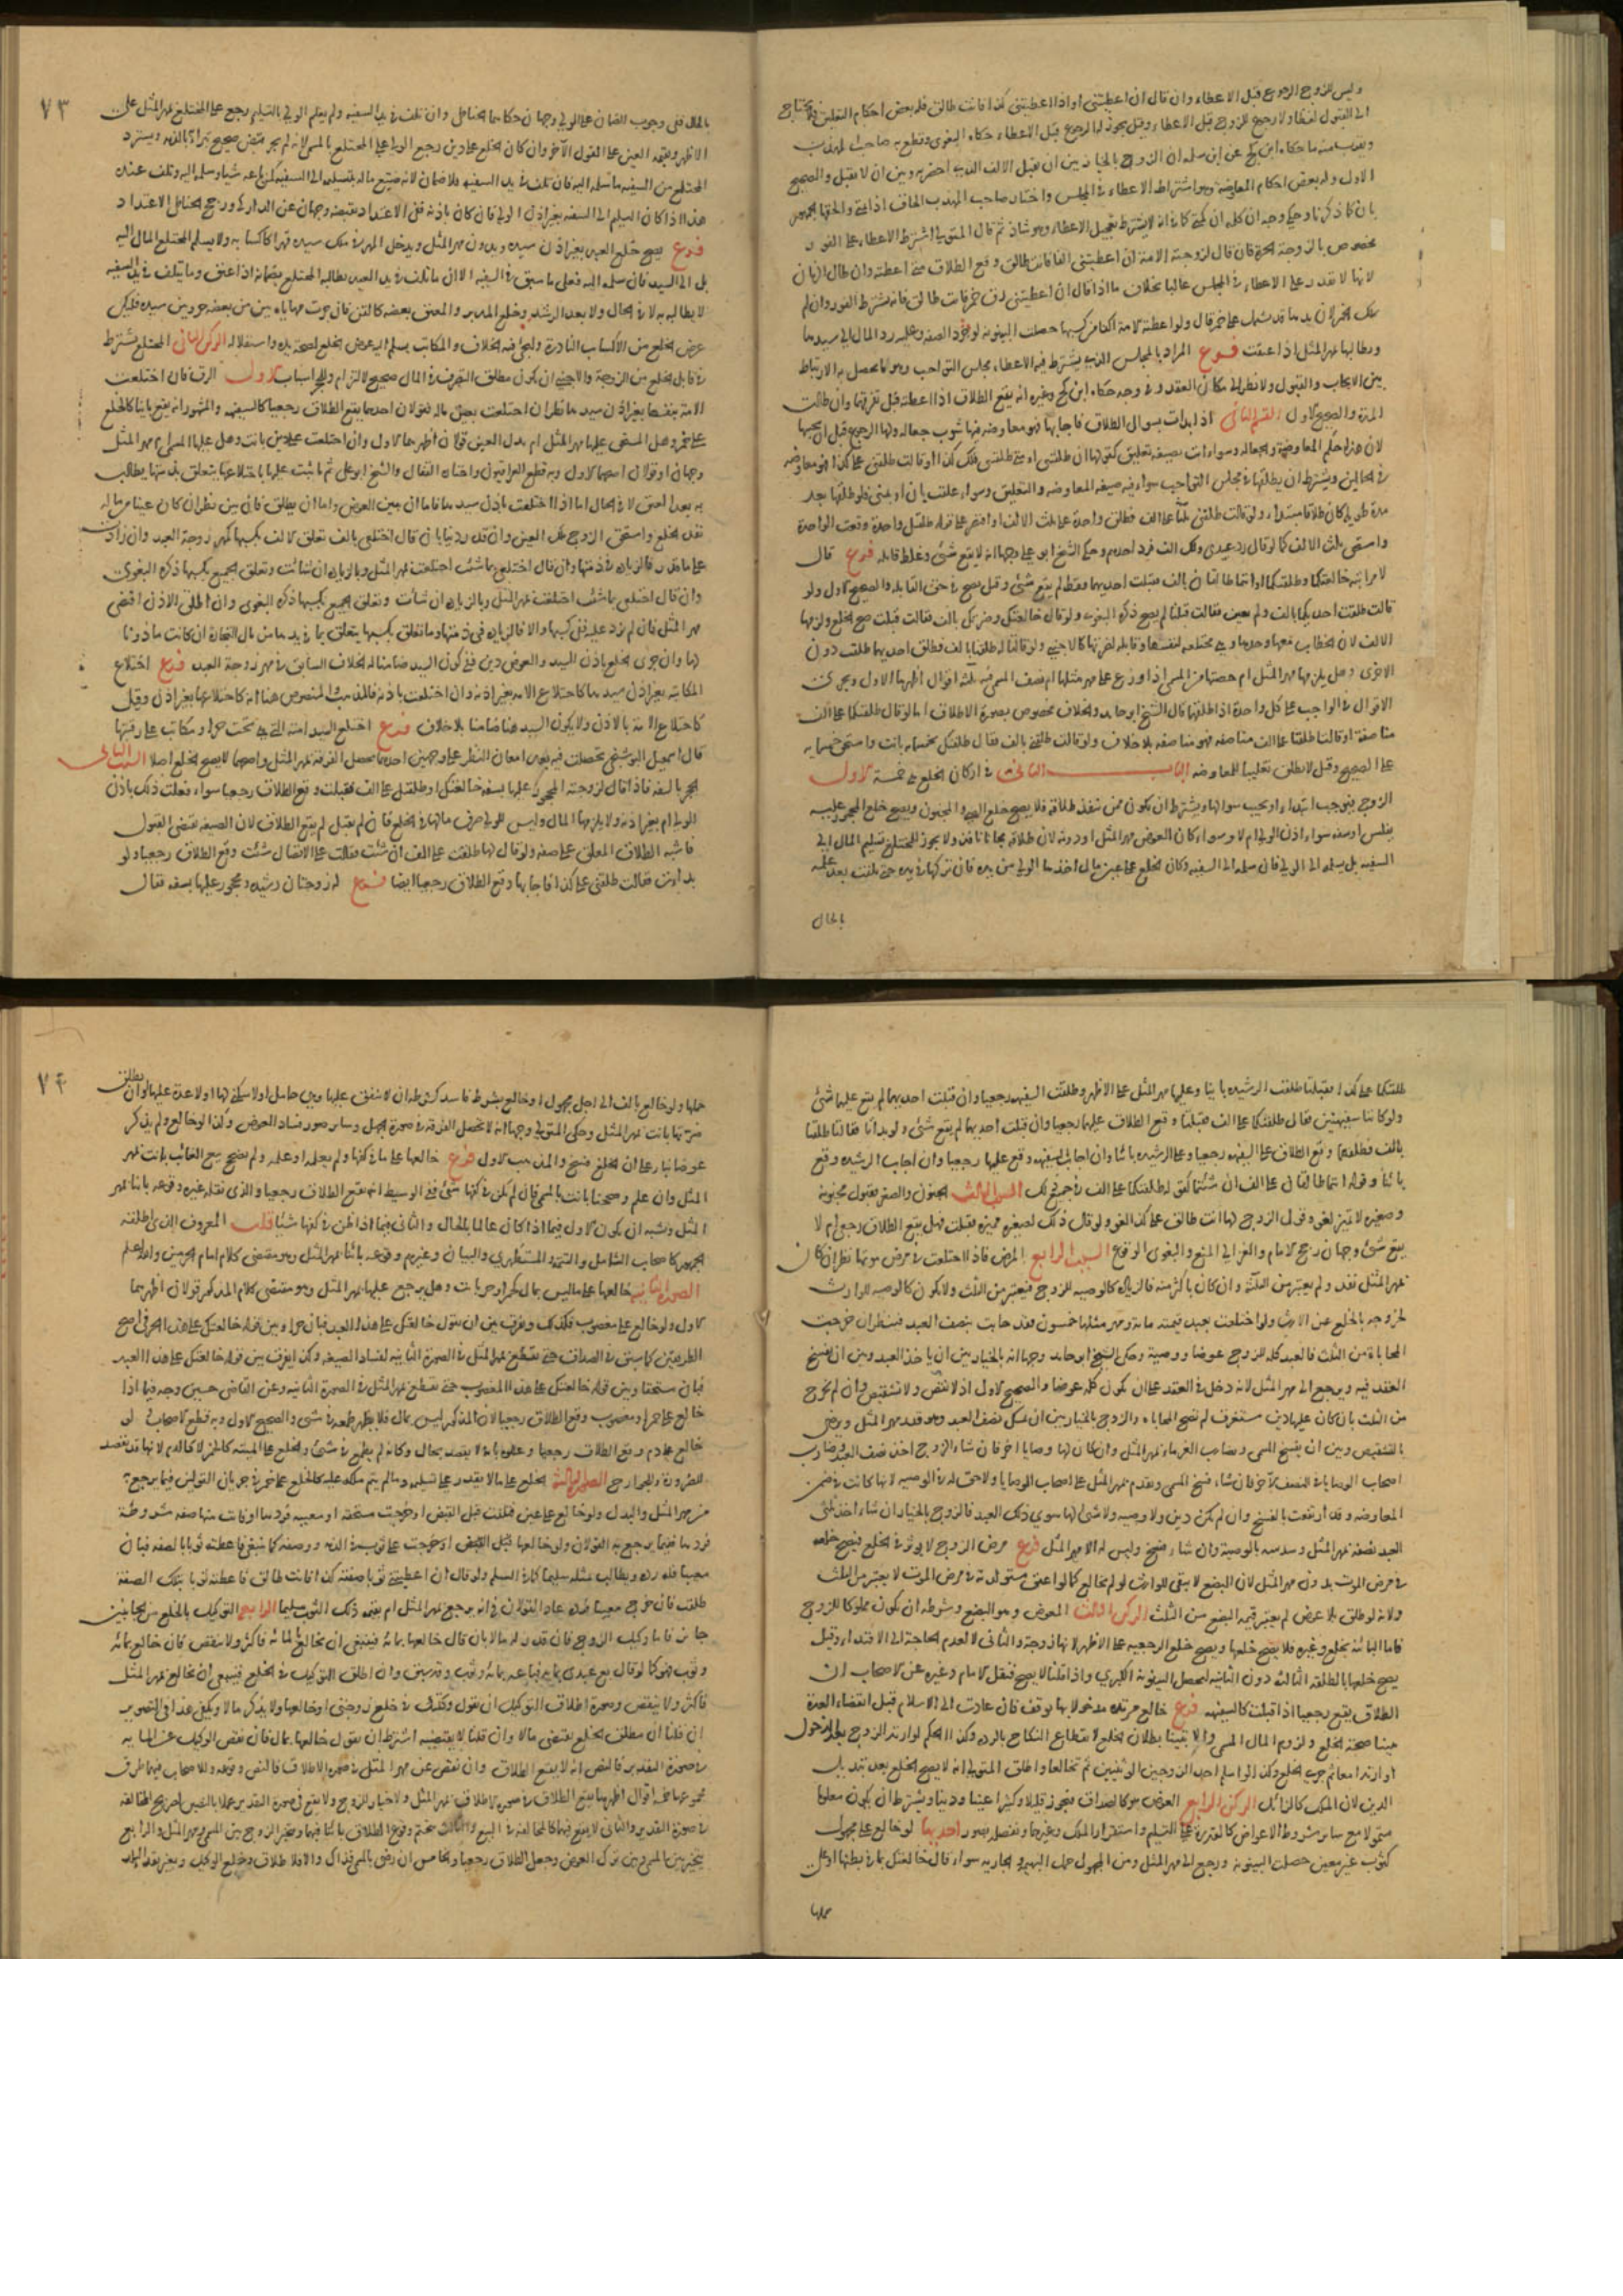 وليس للزوج الرجوع قبل الاعطاء وان قال ان اعطيتني او اذا اعطيتني كذا فانت طالق فله بعض احكام التعليق فلا يحتاج
الى القبول لفظا ولا رجوع للزوج قبل الاعطاء وقيل يجوز له الرجوع قبل الاعطاء حكاه البغوي وقطع به صاحب المهذب
ويقرب منه ما حكاه ابن كج عن ابن سلمة ان الزوج بالخيار بين ان يقبل الالف الذي احضرته وبين ان لا يقبل والصحيح
الاول وله بعض احكام المعاوضة وهو اشتراط الاعطاء في المجلس واختار صاحب المهذب الحاق اذا بمتى والحقها الجمهور
بان كما ذكرنا وحكي وجه ان كلمة ان كمتى كما في انه لا يشترط تعجيل الاعطاء وهو شاذ ثم قال المتولي اشتراط الاعطاء على الفور
مخصوص بالزوجة الحرة فان قال لزوجته الامة ان اعطيتني الفا فانت طالق وقع الطلاق متى اعطته وان طال الزمان
لانها لا تقدر على الاعطاء في المجلس غالبا بخلاف ما اذا قال ان اعطيتني زق خمر فانت طالق فانه يشترط الفور وان لم
تملك الخمر لان يدها قد تشتمل على خمر قال ولو اعطته الامة الفا من كسبها حصلت البينونة لوجود الصفة وعليه رد المال الى سيدها
ويطالبها بمهر المثل اذا عتقت فرع المراد بالمجلس الذي يشترط فيه الاعطاء مجلس التواجب وهو ما يحصل به الارتباط
بين الايجاب والقبول ولا نظر الى مكان العقد وفي وجه حكاه ابن كج وغيره انه يقع الطلاق اذا اعطته قبل تفرقهما وان طالت
المدة والصحيح الاول القسم الثاني اذا بدات بسوال الطلاق فاجابها فهو معاوضة فيها شوب جعالة ولها الرجوع قبل ان يجيبها
لان هذا حكم المعاوضة والجعالة وسواء اتت بصيغة تعليق كقولها ان طلقتني او متى طلقتني فلك كذا او قالت طلقني على كذا فهو معاوضة
في الحالين ويشترط ان يطلقها في مجلس التواجب سواء فيه صيغة المعاوضة والتعليق وسواء علقت بان او بمتى فلو طلقها بعد
مدة طويلة كان طلاقا مبتدا ولو قالت طلقني ثلثا على الف فطلق واحدة على ثلث الالف او اقتصر على قوله طلقتك واحدة وقعت الواحدة
واستحق ثلث الالف كما لو قال رد عبيدي ولك الف فرد احدهم وحكى الشيخ ابو علي وجها انه لا يقع شئ وغلط قائله فرع قال
لامراتيه خالعتكما او طلقتكما او انتما طالقتان بالف فقبلت احديهما فقط لم يقع شئ وقيل يصح في حق القابلة والصحيح الاول ولو
قالت طلقت احديكما بالف ولم يعين فقالت قبلنا لم يصح ذكره البغوي ولو قال خالعتك وضرتك بالف فقالت قبلت صح الخلع ولزمها
الالف لان الخطاب معها وحدها وهي مختلعة لنفسها وقابلة لضرتها كالاجنبي ولو قالتا له طلقنا بالف فطلق احديهما طلقت دون
الاخرى وهل يلزمها مهر المثل ام حصتها من المسمى اذا وزع على مهر مثلهما ام نصف المسمى فيه ثلثة اقوال اظهرها الاول ويجري
الاقوال في الواجب على كل واحدة اذا طلقهما قال الشيخ ابو حامد والخلاف مخصوص بصورة الاطلاق اما لو قال طلقتكما على الف
مناصفة او قالتا طلقنا على الف مناصفة فهو مناصفة بلا خلاف ولو قالت طلقني بالف فقال طلقتك بخمسمائة بانت واستحق خمسمائة
على الصحيح وقيل لا يطلق تغليبا للمعاوضة الباب الثاني في اركان الخلع هي خمسة الاول
الزوج بتوجب ابتداء او يجيب سوالها ويشترط ان يكون ممن ينفذ طلاقه فلا يصح خلع الصبي والمجنون ويصح خلع المحجور عليه
بفلس او سفه سواء اذن الولي ام لا وسواء كان العوض مهر المثل او دونه لان طلاقه مجانا نافذ ولا يجوز للمختلع تسليم المال الى
السفيه بل يسلمه الى الولي فان سلمه الى السفيه وكان الخلع على عين مال اخذها الولي من يده فان تركها في يده حتى تلفت بعد علمه
بالحال
٧٣
بالحال ففي وجوب الضمان على الولي وجهان حكاهما الحناطي وان تلفت في يد السفيه ولم يعلم الولي بالتسليم رجع على المختلع بمهر المثل على
الاظهر وبقيمة العين على القول الآخر وان كان الخلع على دين رجع الولي على المختلع بالمسمى لانه لم يجر قبض صحيح تبرا به الذمة ويسترد
المختلع من السفيه ما سلمه اليه فان تلف في يد السفيه فلا ضمان لانه ضيع ماله بتسليمه الى السفيه كمن باعه شيا وسلمه اليه وتلف عنده
هذا اذا كان التسليم الى السفيه بغير اذن الولي فان كان باذنه ففي الاعتداد بقبضه وجهان عن الداركي ورجح الحناطي الاعتداد
فرع يصح خلع العبد بغير اذن سيده وبدون مهر المثل ويدخل المهر في ملك سيده قهرا كاكسابه ولا يسلم المختلع المال اليه
بل الى السيد فان سلمه اليه فعلى ما سبق في السفيه الا ان ما تلف في يد العبد يطالبه المختلع بضمانه اذا عتق وما يتلف في يد السفيه
لا يطالب به لا في الحال ولا بعد الرشد وخلع المدبر والمعتق بعضه كالقن فان جرت مهاياة بين من بعضه حر وبين سيده فليكن
عوض الخلع من الاكساب النادرة ويجئ فيه الخلاف والمكاتب يسلم اليه عوض الخلع لصحة يده واستقلاله الركن الثاني المختلع يشترط
في قابل الخلع من الزوجة والاجنبي ان يكون مطلق التصرف في المال صحيح الالتزام وللحجر اسباب الاول الرق فان اختلعت
الامة بنفسها بغير اذن سيدها نظر ان اختلعت بعين ماله فقولان احدهما يقع الطلاق رجعيا كالسفيه والمشهور انه يقع باينا كالخلع
على خمر وهل المستحق عليها مهر المثل ام بدل العين قولان اظهرهما الاول وان اختلعت على دين بانت وهل عليها المسمى ام مهر المثل
وجهان او قولان اصحهما الاول وبه قطع العراقيون واختاره القفال والشيخ ابو علي ثم ما يثبت عليها باختلاعها يتعلق بذمتها يطالب
به بعد العتق لا في الحال اما اذا اختلعت باذن سيدها فاما ان يبين العوض واما ان يطلق فان بين نظر ان كان عينا من ماله
نفذ الخلع واستحق الزوج تلك العين وان قدر دينا بان قال اختلعي بالف تعلق الالف بكسبها كمهر زوجة العبد وان زادت
على ما قدر فالزيادة في ذمتها وان قال اختلعي بما شئت اختلعت بمهر المثل وبالزيادة ان شائت وتعلق الجميع بكسبها ذكره البغوي
وان قال اختلعي بما شئت اختلعت بمهر المثل وبالزيادة ان شأت وتعلق الجميع بكسبها ذكره البغوي وان اطلق الاذن اقتضى
مهر المثل فان لم يزد عليه ففي كسبها والا فالزيادة في ذمتها وما تعلق بكسبها يتعلق بما في يدها من مال التجارة ان كانت ماذونا
لها وان جرى الخلع باذن السيد والعوض دين ففي كون السيد ضامنا له الخلاف السابق في مهر زوجة العبد فرع اختلاع
المكاتبة بغير اذن سيدها كاختلاع الامة بغير اذنه وان اختلعت باذنه فالمذهب والمنصوص هنا انه كاختلاعها بغير اذن وقيل
كاختلاع الامة بالاذن ولا يكون السيد هنا ضامنا بلا خلاف فرع اختلع السيد امته التي هي تحت حر او مكاتب على رقبتها
قال اسمعيل البوشنجي تحصلت فيه بعد امعان النظر على وجهين احدهما تحصل الفرقة بمهر المثل واصحهما لا يصح الخلع اصلا السبب الثاني
الحجر بالسفه فاذا قال لزوجته المحجور عليها بسفه خالعتك او طلقتك على الف فقبلت وقع الطلاق رجعيا سواء فعلت ذلك باذن
الولي ام بغير اذنه ولا يلزمها المال وليس للولي صرف مالها في الخلع فان لم يقبل لم يقع الطلاق لان الصيغة تقتضي القبول
فاشبه الطلاق المعلق على صفة ولو قال لها طلقتك على الف ان شئت فقالت على الاتصال شئت وقع الطلاق رجعيا ولو
بدات فقالت طلقني على كذا فاجابها وقع الطلاق رجعيا ايضا فرع له زوجتان رشيدة ومحجور عليها بسفه فقال
طلقتكما على كذا فقبلتا طلقت الرشيدة باينا وعليها مهر المثل على الاظهر وطلقت السفيهة رجعيا وان قبلت احديهما لم يقع عليهما شئ
ولو كانتا سفيهتين فقال طلقتكما على الف فقبلتا وقع الطلاق عليهما رجعيا وان قبلت احديهما لم يقع شئ ولو بداتا فقالتا طلقنا
بالف فطلقهما وقع الطلاق على السفيهة رجعيا وعلى الرشيدة بائنا وان اجاب السفيهة وقع عليها رجعيا وان اجاب الرشيدة وقع
بائنا وقوله انتما طالقتان على الف ان شئتما كقوله طلقتكما على الف في جميع ذلك السبب الثالث الجنون والصغر فقبول مجنونة
وصغيرة لا تميز لغو وقول الزوج لها انت طالق على كذا لغو ولو قال ذلك لصغيرة مميزة فقبلت فهل يقع الطلاق رجعيا ام لا
يقع شئ وجهان رجح الامام والغزالي المنع والبغوي الوقوع السبب الرابع المرض فاذا اختلعت في مرض موتها نظر ان كان
بمهر المثل نفذ ولم يعتبر من الثلث وان كان باكثر منه فالزيادة كالوصية للزوج فتعتبر من الثلث ولا يكون كالوصية للوارث
لخروجه بالخلع عن الارث ولو اختلعت بعبد قيمته مائة ومهر مثلها خمسون فقد حابت بنصف العبد فينظر ان خرجت
المحاباة من الثلث فالعبد كله للزوج عوضا ووصية وحكى الشيخ ابو حامد وجها انه بالخيار بين ان ياخذ العبد وبين ان يفسخ
العقد فيه ويرجع الى مهر المثل لانه دخل في العقد على ان يكون كله عوضا والصحيح الاول اذ لا نقص ولا تشقيص وان لم يخرج
من الثلث بان كان عليها دين مستغرق لم تصح المحاباة والزوج بالخيار بين ان يمسك نصف العبد وهو قدر مهر المثل ويرضى
بالتشقيص وبين ان يفسخ المسمى ويضارب الغرماء بمهر المثل وان كان لها وصايا اخر فان شاء الزوج اخذ نصف العبد وضارب
اصحاب الوصايا في النصف الآخر وان شاء فسخ المسمى ويقدم بمهر المثل على اصحاب الوصايا ولا حق له في الوصية لانها كانت في ضمن
المعاوضة وقد ارتفعت بالفسخ وان لم يكن دين ولا وصية ولا شئ لها سوى ذلك العبد فالزوج بالخيار ان شاء اخذ ثلثي
العبد نصفه بمهر المثل وسدسه بالوصية وان شاء فسخ وليس له الا مهر المثل فرع مرض الزوج لا يوثر في الخلع فيصح خلعه
في مرض الموت بدون مهر المثل لان البضع لا يبقى للوارث لو لم يخالع كما لو اعتق مستولدته في مرض الموت لا يعتبر من الثلث
ولانه لو طلق بلا عوض لم يعتبر قيمة البضع من الثلث الركن الثالث المعوض وهو البضع وشرطه ان يكون مملوكا للزوج
فاما البائنة بخلع وغيره فلا يصح خلعها ويصح خلع الرجعية على الاظهر لانها زوجة والثاني لا لعدم الحاجة الى الافتداء وقيل
يصح خلعها بالطلقة الثالثة دون الثانية ليحصل البينونة الكبرى واذا قلنا لا يصح فنقل الامام وغيره عن الاصحاب ان
الطلاق يقع رجعيا اذا قبلت كالسفيهة فرع خالع مرتدة مدخولا بها توقف فان عادت الى الاسلام قبل انقضاء العدة
تبينا صحة الخلع ولزوم المال المسمى والا تبينا بطلان الخلع لانقطاع النكاح بالردة وكذا الحكم لو ارتد الزوج بعد الدخول
او ارتدا معا ثم جرى الخلع وكذا لو اسلم احد الزوجين الوثنيين ثم تخالعا واطلق المتولي انه لا يصح الخلع بعد تبديل
الدين لان الملك كالزائل الركن الرابع العوض هو كالصداق فيجوز قليلا وكثيرا عينا ودينا ويشترط ان يكون معلوما
متمولا مع ساير شروط الاعواض كالقدرة على التسليم واستقرار الملك وغيرهما وتفصيله بصور احديها لو خالع على مجهول
كثوب غير معين حصلت البينونة ورجع الى مهر المثل ومن المجهول حمل البهيمة والجارية سواء قال خالعتك بما في بطنها او على
حملها
٧٤
حملها ولو خالع بالف الى اجل مجهول او خالع بشرط فاسد كشرط ان لا ينفق عليها وهي حامل او لا سكنى لها او لا عدة عليها او ان يطلق
ضرتها بانت بمهر المثل وحكى المتولي وجها انه لا تحصل الفرقة في صورة الجهل وساير صور فساد العوض وكذا لو خالع ولم يذكر
عوضا بناء على ان الخلع فسخ والمذهب الاول فرع خالعها على ما في كفها ولم يعلمه او علمه ولم يصحح بيع الغائب بانت بمهر
المثل وان علم وصححنا بانت بالمسمى فان لم يكن في كفها شئ ففي الوسيط انه يقع الطلاق رجعيا والذي نقله غيره وقوعه بائنا بمهر
المثل ويشبه ان يكون الاول فيما اذا كان عالما بالحال والثاني فيما اذا ظن في كفها شيئا قلت المعروف الذي اطلقه
الجمهور كاصحاب الشامل والتتمة والمستظهري والبيان وغيرهم وقوعه بائنا بمهر المثل وهو مقتضى كلام امام الحرمين والله اعلم
الصورة الثانية خالعها على ما ليس بمال كخمر او حر بانت وهل يرجع عليها بمهر المثل وهو مقتضى كلام المذكور قولان اظهرهما
الاول ولو خالع على مغصوب فكذلك وفرق بين ان يقول خالعتك على هذا العبد فبان حرا وبين قوله خالعتك على هذا الحر في اصح
الطريقين كما سبق في الصداق حتى نقطع بمهر المثل في الصورة الثانية لفساد الصيغة وكذا يفرق بين قوله خالعتك على هذا العبد
فبان مستحقا وبين قوله خالعتك على هذا المغصوب حتى نقطع بمهر المثل في الصورة الثانية وعن القاضي حسين وجه فيما اذا
خالع على خمر او مغصوب وقع الطلاق رجعيا لان المذكور ليس بمال فلا يظهر طمعه في شئ والصحيح الاول وبه قطع الاصحاب لو
خالع على دم وقع الطلاق رجعيا وعللوه بانه لا يقصد بحال وكانه لم يطمع في شئ والخلع على الميتة كالخمر لا كالدم لانها قد تقصد
للضرورة وللجوارح الصورة الثالثة الخلع على ما لا يقدر على تسليمه وما لم يتم ملكه عليه كالخلع على خمر في جريان القولين فيما يرجع به
من مهر المثل والبدل ولو خالع على عين فتلفت قبل القبض او خرجت مستحقة او معيبة فردها او فاتت منها صفة مشروطة
فردها ففيما يرجع به القولان ولو خالعها قبل القبض او خرجت على ثوب في الذمة ووصفه كما ينبغي فاعطته ثوبا بالصفة فبان
معيبا فله رده ويطالب بمثله سليما كما في السلم ولو قال ان اعطيتني ثوبا صفته كذا فانت طالق فاعطته ثوبا بتلك الصفة
طلقت فان خرج معيبا فرده عاد القولان في انه يرجع بمهر المثل ام بقيمة ذلك الثوب سليما الرابع التوكيل بالخلع من الجانبين
جائز فاما وكيل الزوج فان قدر له مالا بان قال خالعها بمائة فينبغي ان يخالع بالمائة فاكثر ولا ينقص فان خالع بمائة
وثوب فهو كما لو قال بع عبدي بمائة فباعه بمائة وثوب وقد سبق وان اطلق التوكيل في الخلع فينبغي ان يخالع بمهر المثل
فاكثر ولا ينقص وصورة اطلاق التوكيل ان يقول وكلتك في خلع زوجتي او خالعها ولا يذكر مالا ويكفي هذا في التصوير
ان قلنا ان مطلق الخلع يقتضي مالا وان قلنا لا يقتضيه اشترط ان يقول خالعها بمال فان نقص الوكيل عن المائة
في صورة التقدير فالنص انه لا يقع الطلاق وان نقص عن مهر المثل في صورة الاطلاق فالنص وقوعه وللاصحاب فيهما طرق
مجموعها خمسة اقوال اظهرها يقع الطلاق في صورة الاطلاق بمهر المثل ولا خيار للزوج ولا يقع في صورة التقدير عملا بالنص لصريح المخالفة
في صورة التقدير والثاني لا يقع فيهما كالمخالفة في البيع والثالث يتحتم وقوع الطلاق بائنا فيهما ويتخير الزوج بين المسمى ومهر المثل والرابع
يتخير بين المسمى وبين ترك العوض وجعل الطلاق رجعيا والخامس ان رضي بالمسمى فذاك والا فلا طلاق وخلع الوكيل وبغير نقد البلد